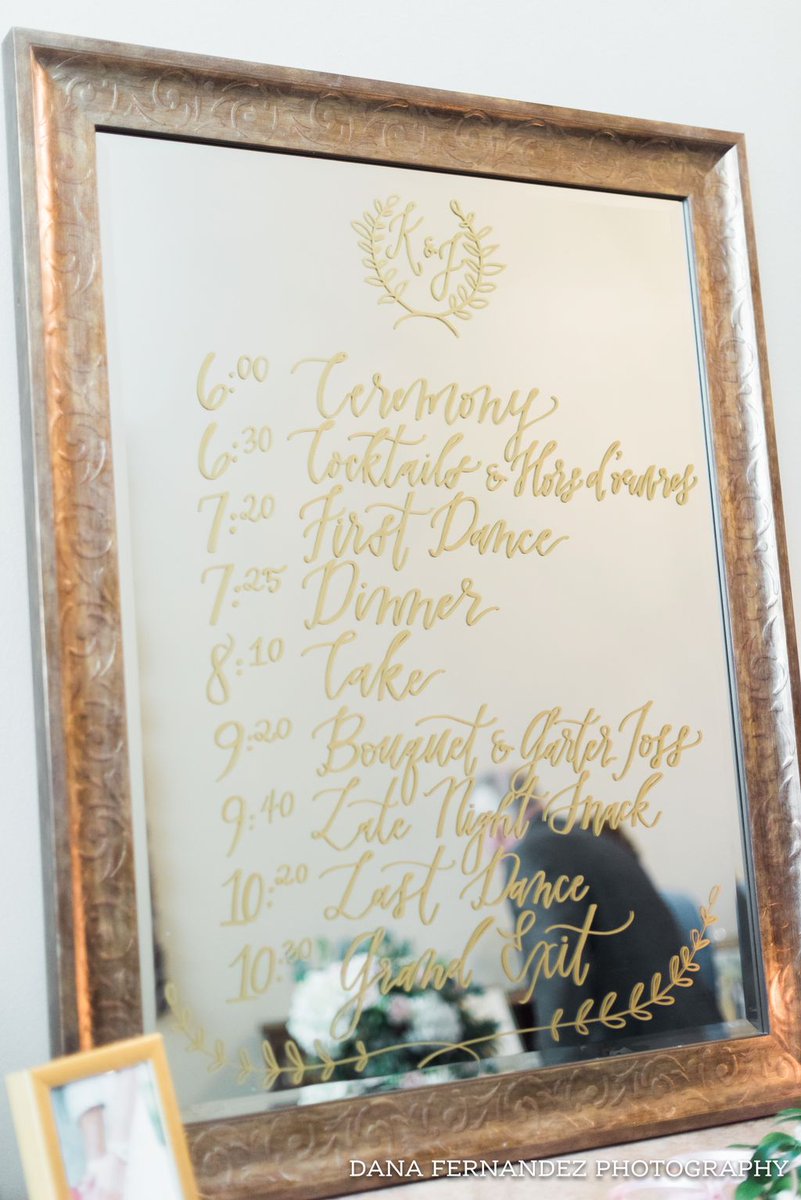 K & J
6:00 Ceremony
6:30 Cocktails & Hors d'oeuvres
7:20 First Dance
7:25 Dinner
8:10 Cake
9:20 Bouquet & Garter Toss
9:40 Late Night Snack
10:20 Last Dance
10:30 Grand Exit
DANA FERNANDEZ PHOTOGRAPHY